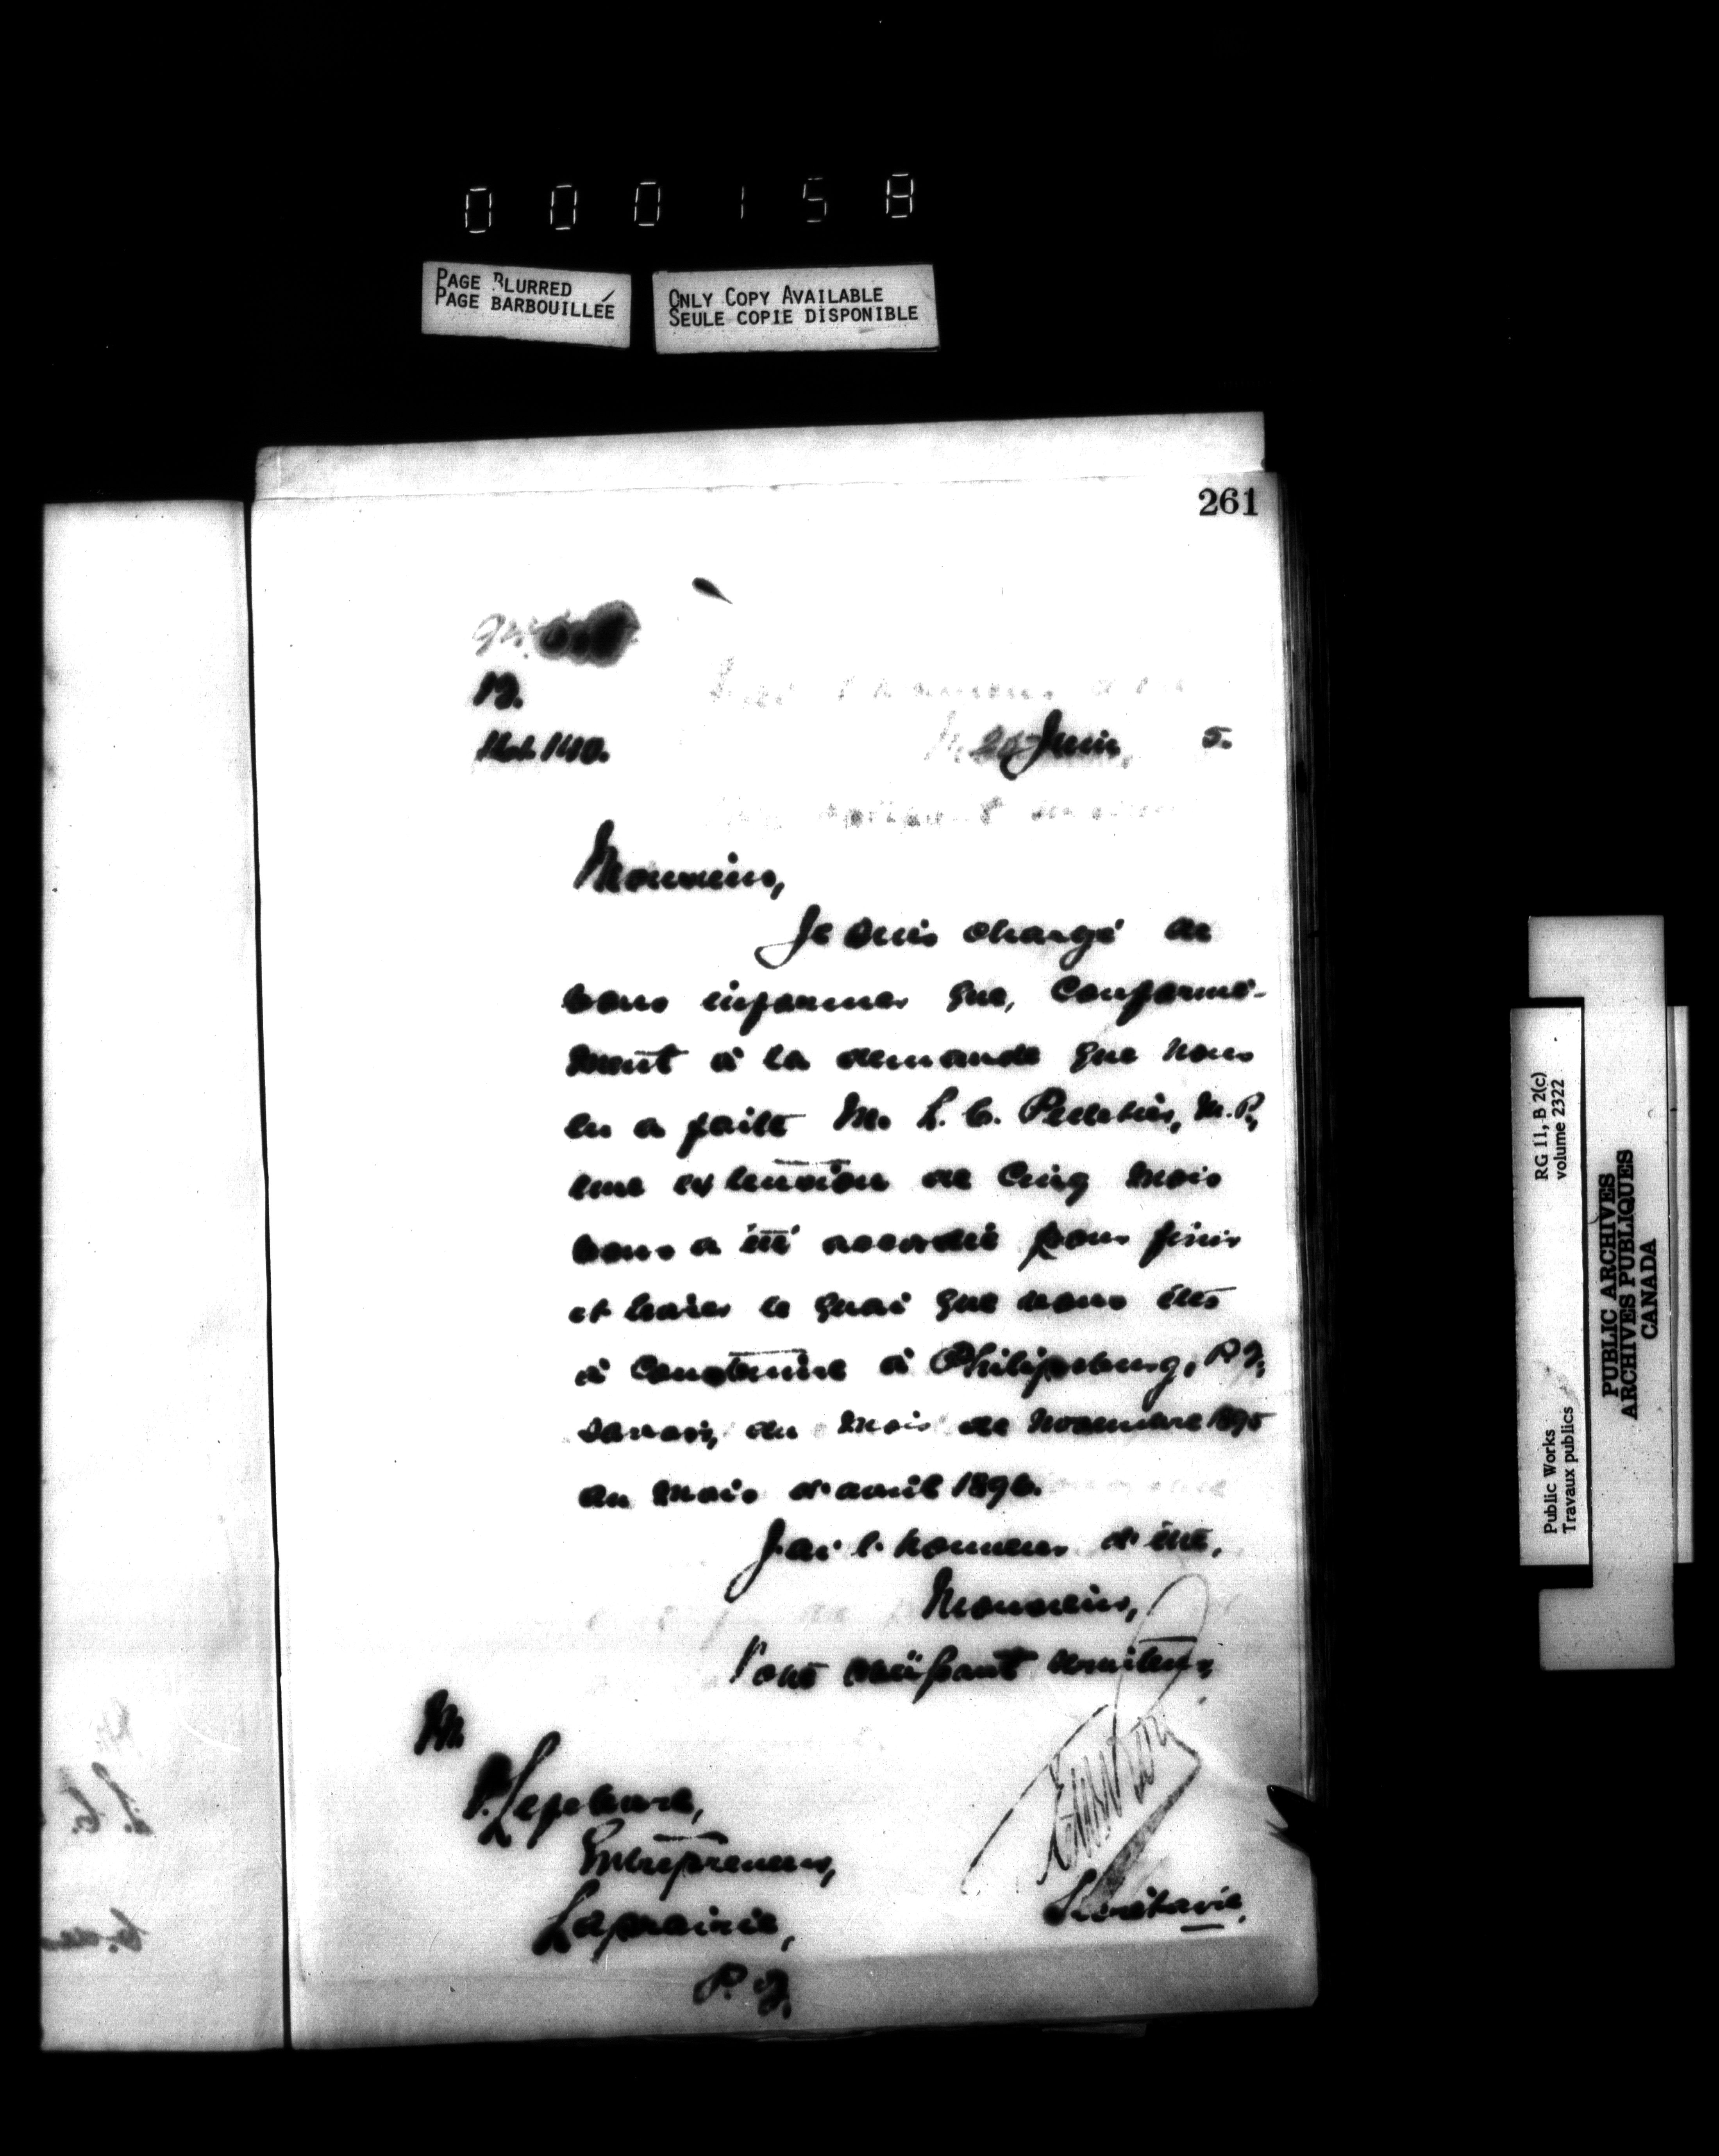 000158
PAGE BLURRED
PAGE BARBOUILLÉE
ONLY COPY AVAILABLE
SEULE COPIE DISPONIBLE
261
140.
Juin, 5.
Monsieur,
Je suis chargé de
vous informer que, conformé-
ment à la demande que nous
en a faite M. L. C. Pelletier, M.P.,
une extension de cinq mois
vous a été accordée pour finir
et livrer le quai que vous êtes
à construire à Philipsburg, P.Q.
savoir, du mois de novembre 1895
au mois d'avril 1896.
J'ai l'honneur d'être,
Monsieur,
Votre obéissant serviteur,
M.
P. Lefebvre,
Entrepreneur,
Laprairie,
P.Q.
Secrétaire.
RG 11, B 2(c)
volume 2322
Public Works
Travaux publics
PUBLIC ARCHIVES
ARCHIVES PUBLIQUES
CANADA